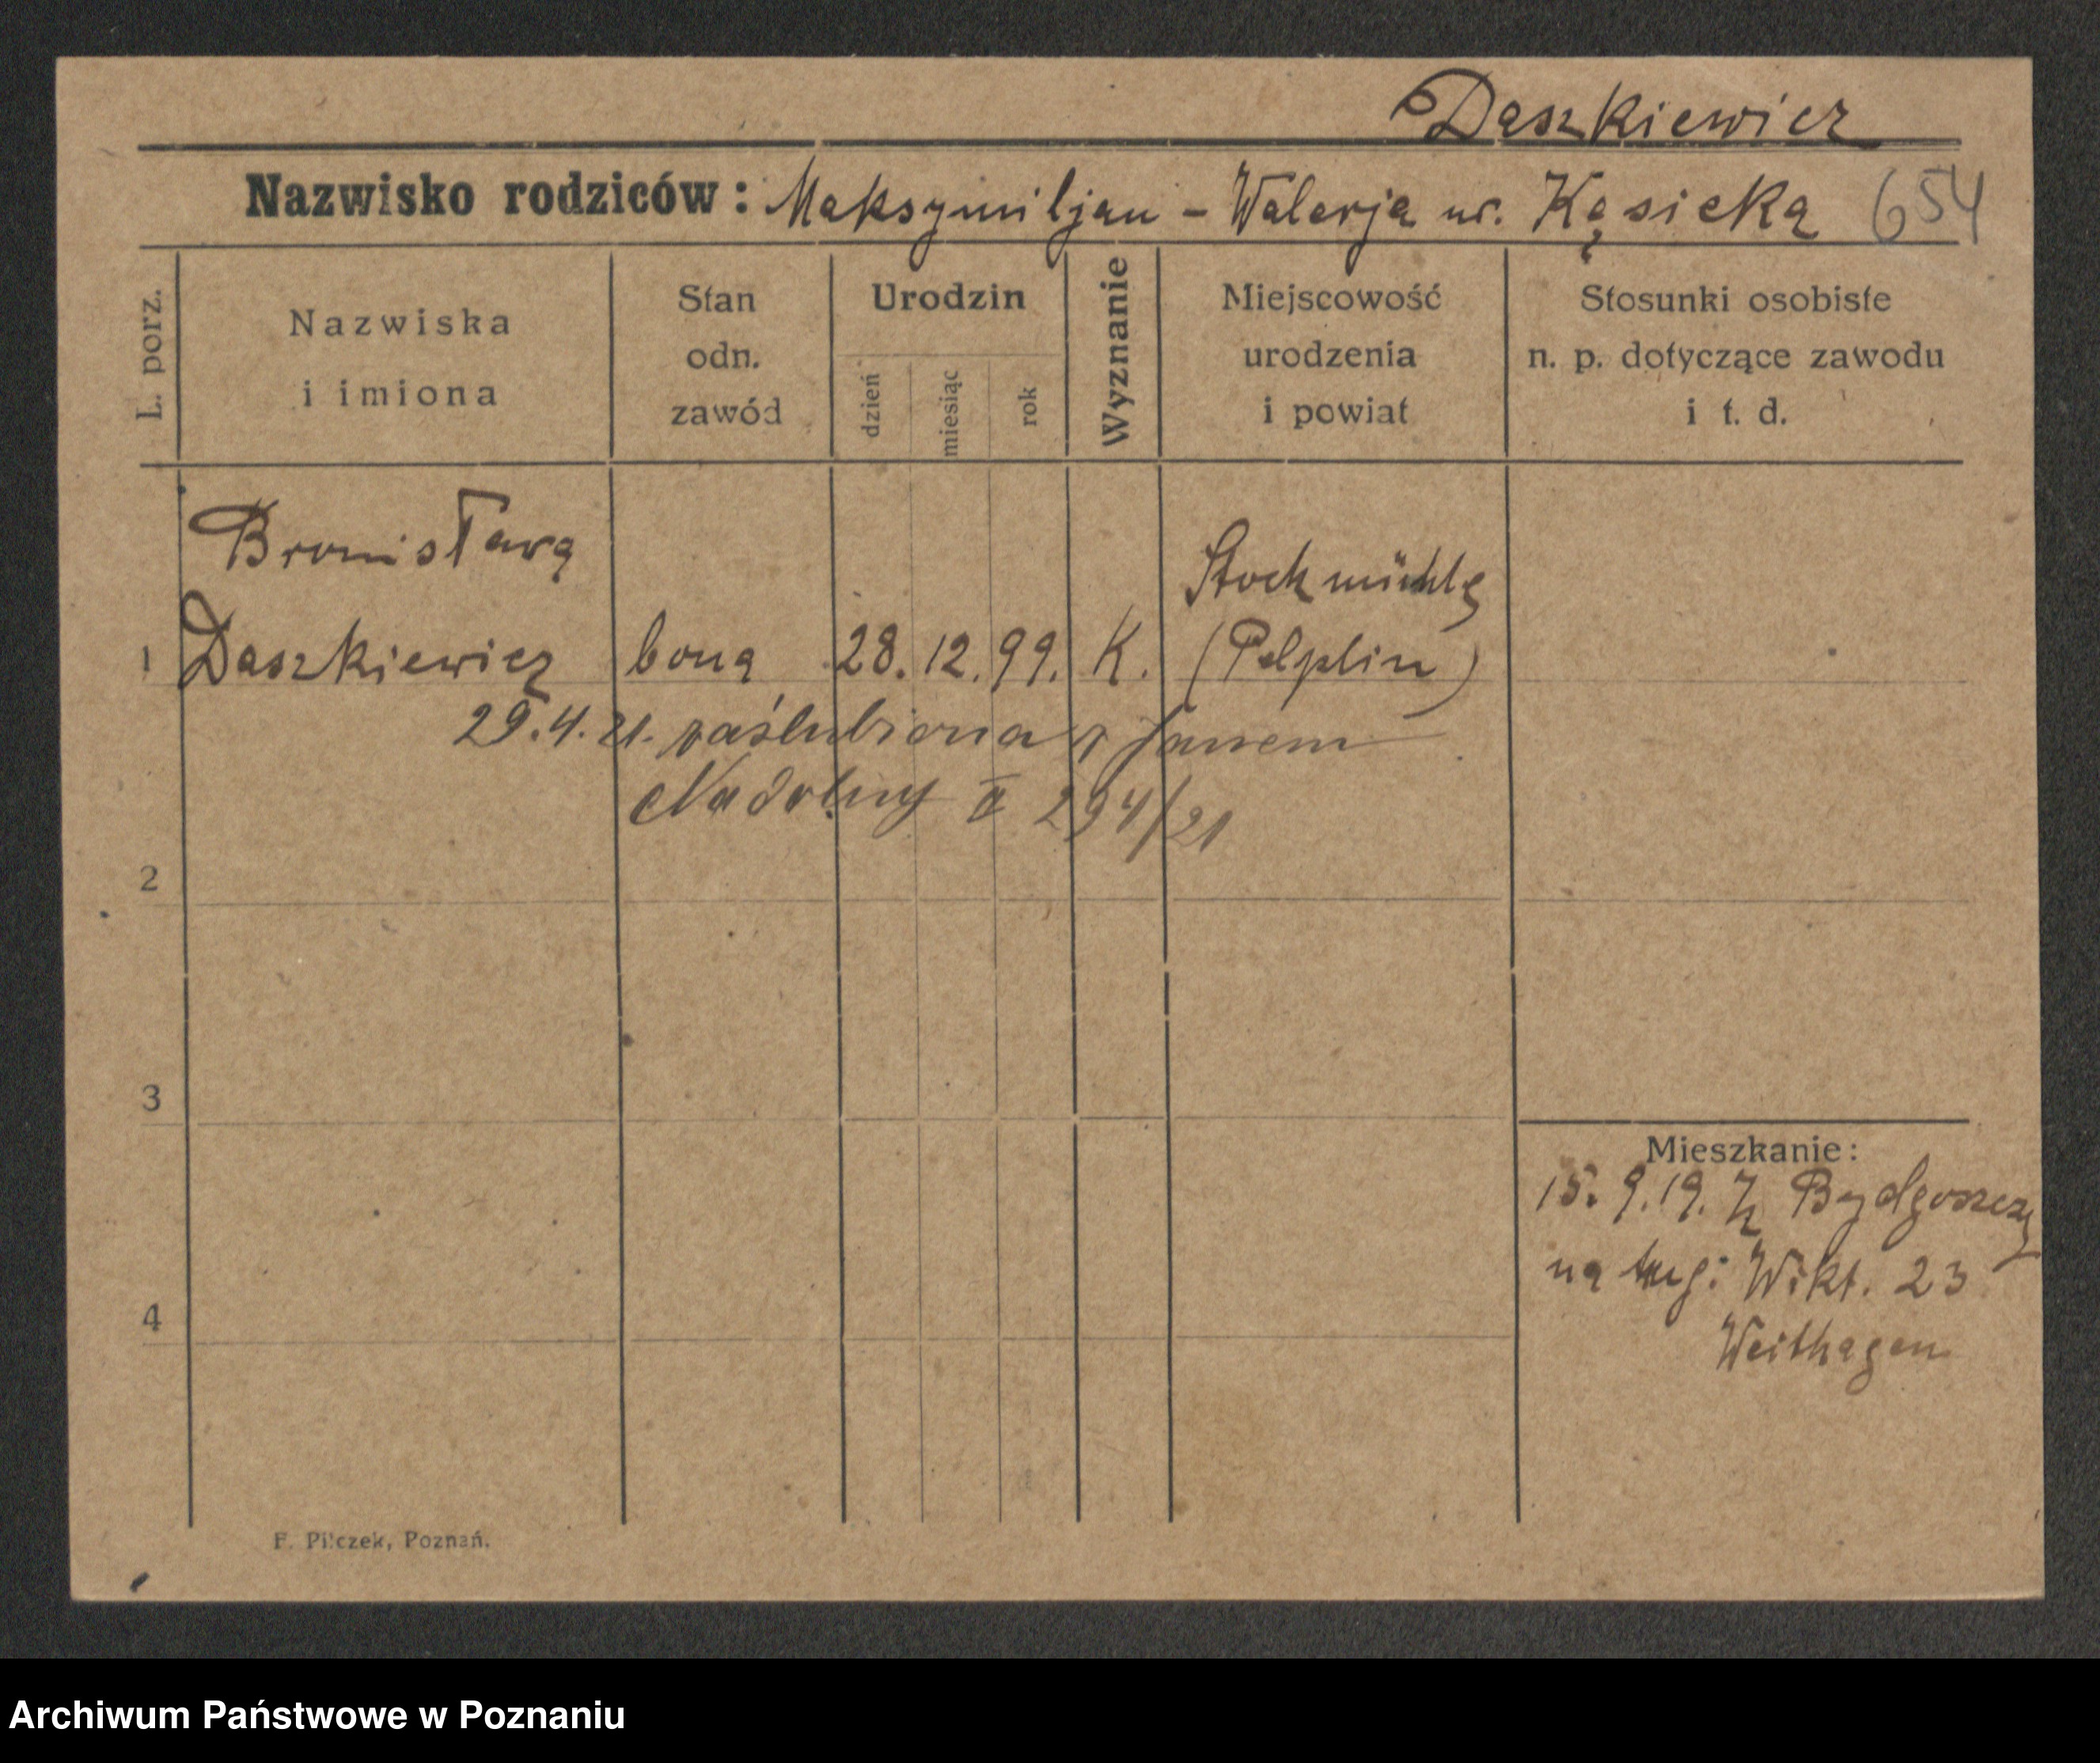 Daszkiewicz
Nazwisko rodziców: Maksymiljan - Walerja ur. Kąsicka 654
L. porz.
Nazwiska
i imiona
Stan
odn.
zawód
Urodzin
dzień
miesiąc
rok
Wyznanie
Miejscowość
urodzenia
i powiat
Stosunki osobiste
n. p. dotyczące zawodu
i t. d.
Bronisława
Stockmühle
1 Daszkiewicz bona 28. 12. 99. K. (Pelplin)
29.4.21. zaślubiona z Janem
Nadolny 294/21
2
3
4
Mieszkanie:
15. 9. 19. Z Bydgoszczy
na Wikt. 23
Weithagen
F. Pilczek, Poznań.
Archiwum Państwowe w Poznaniu